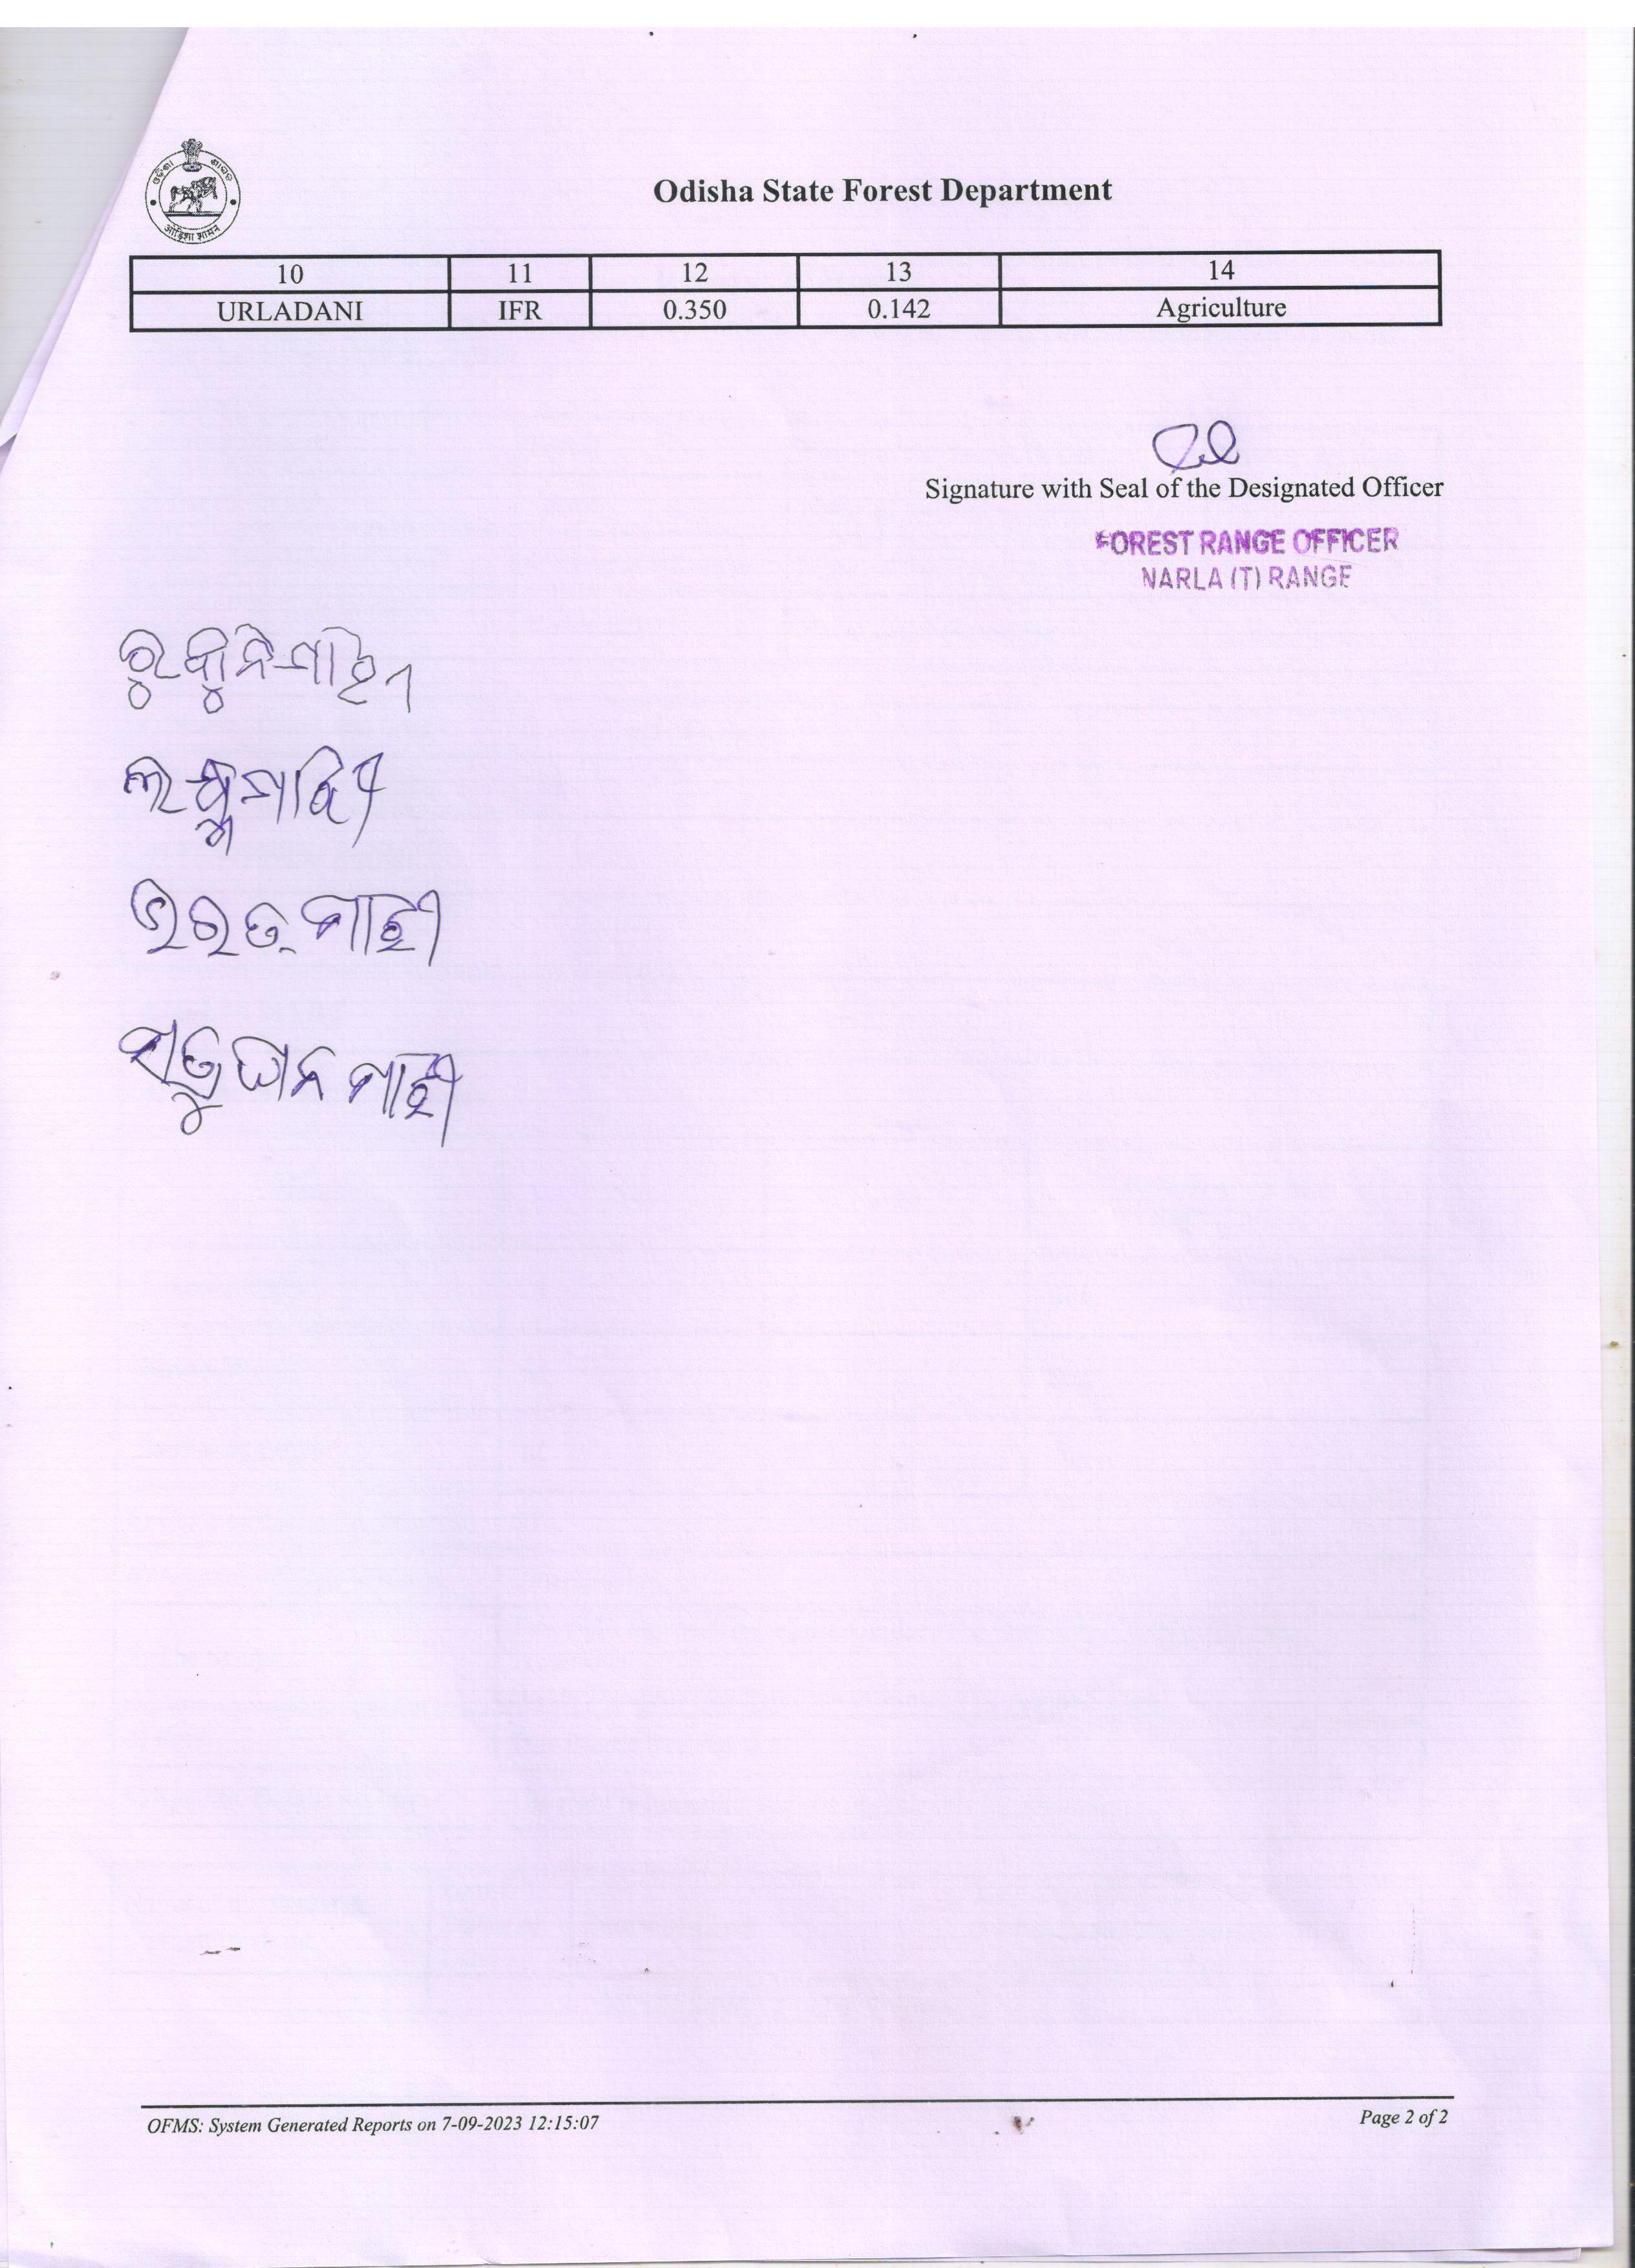 ଓଡ଼ିଶା ଶାସନ
ओड़िशा शासन
Odisha State Forest Department
10 11 12 13 14
URLADANI IFR 0.350 0.142 Agriculture
Signature with Seal of the Designated Officer
FOREST RANGE OFFICER
NARLA (T) RANGE
ଭରତ ମାଝୀ
ମାଝୀ
OFMS: System Generated Reports on 7-09-2023 12:15:07
Page 2 of 2